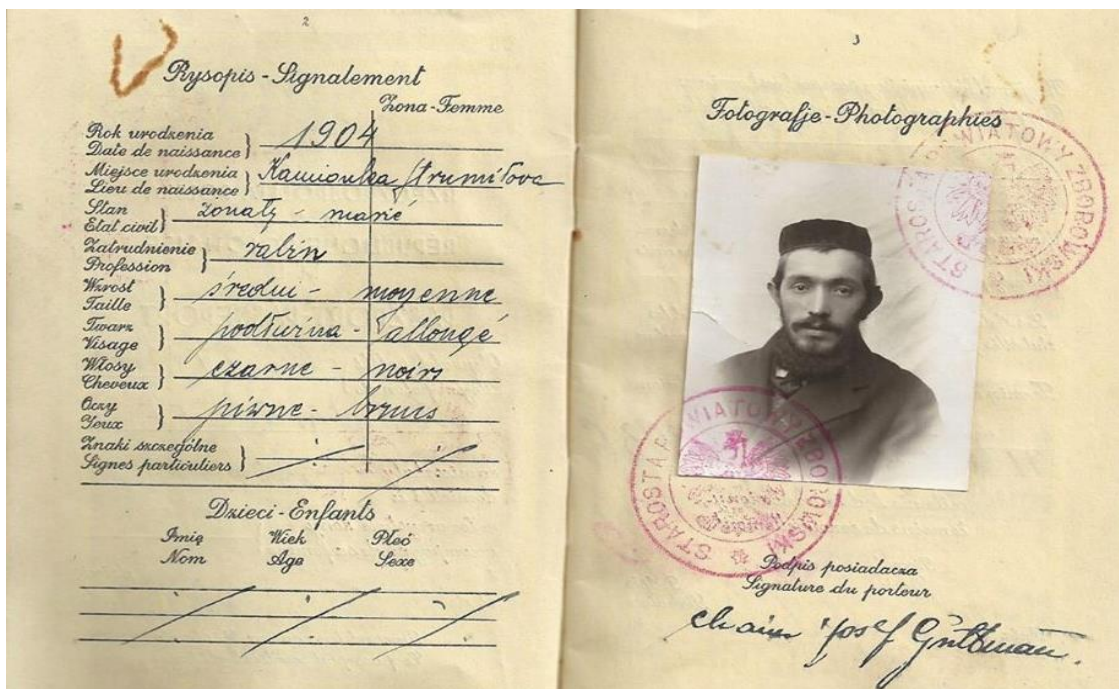 2
Rysopis - Signalement
Żona - Femme
Rok urodzenia
Date de naissance } 1904
Miejsce urodzenia
Lieu de naissance } Kamionka Strumiłowa
Stan
Etat civil } żonaty - marié
Zatrudnienie
Profession } rabin
Wzrost
Taille } średni - moyenne
Twarz
Visage } podłużna - allongé
Włosy
Cheveux } czarne - noirs
Oczy
Yeux } piwne - bruns
Znaki szczególne
Signes particuliers }
Dzieci - Enfants
Imię Wiek Płeć
Nom Age Sexe
3
Fotografje - Photographies
STAROSTA POWIATOWY ZBOROWSKI
STAROSTA POWIATOWY ZBOROWSKI
Podpis posiadacza
Signature du porteur
chaim Josef